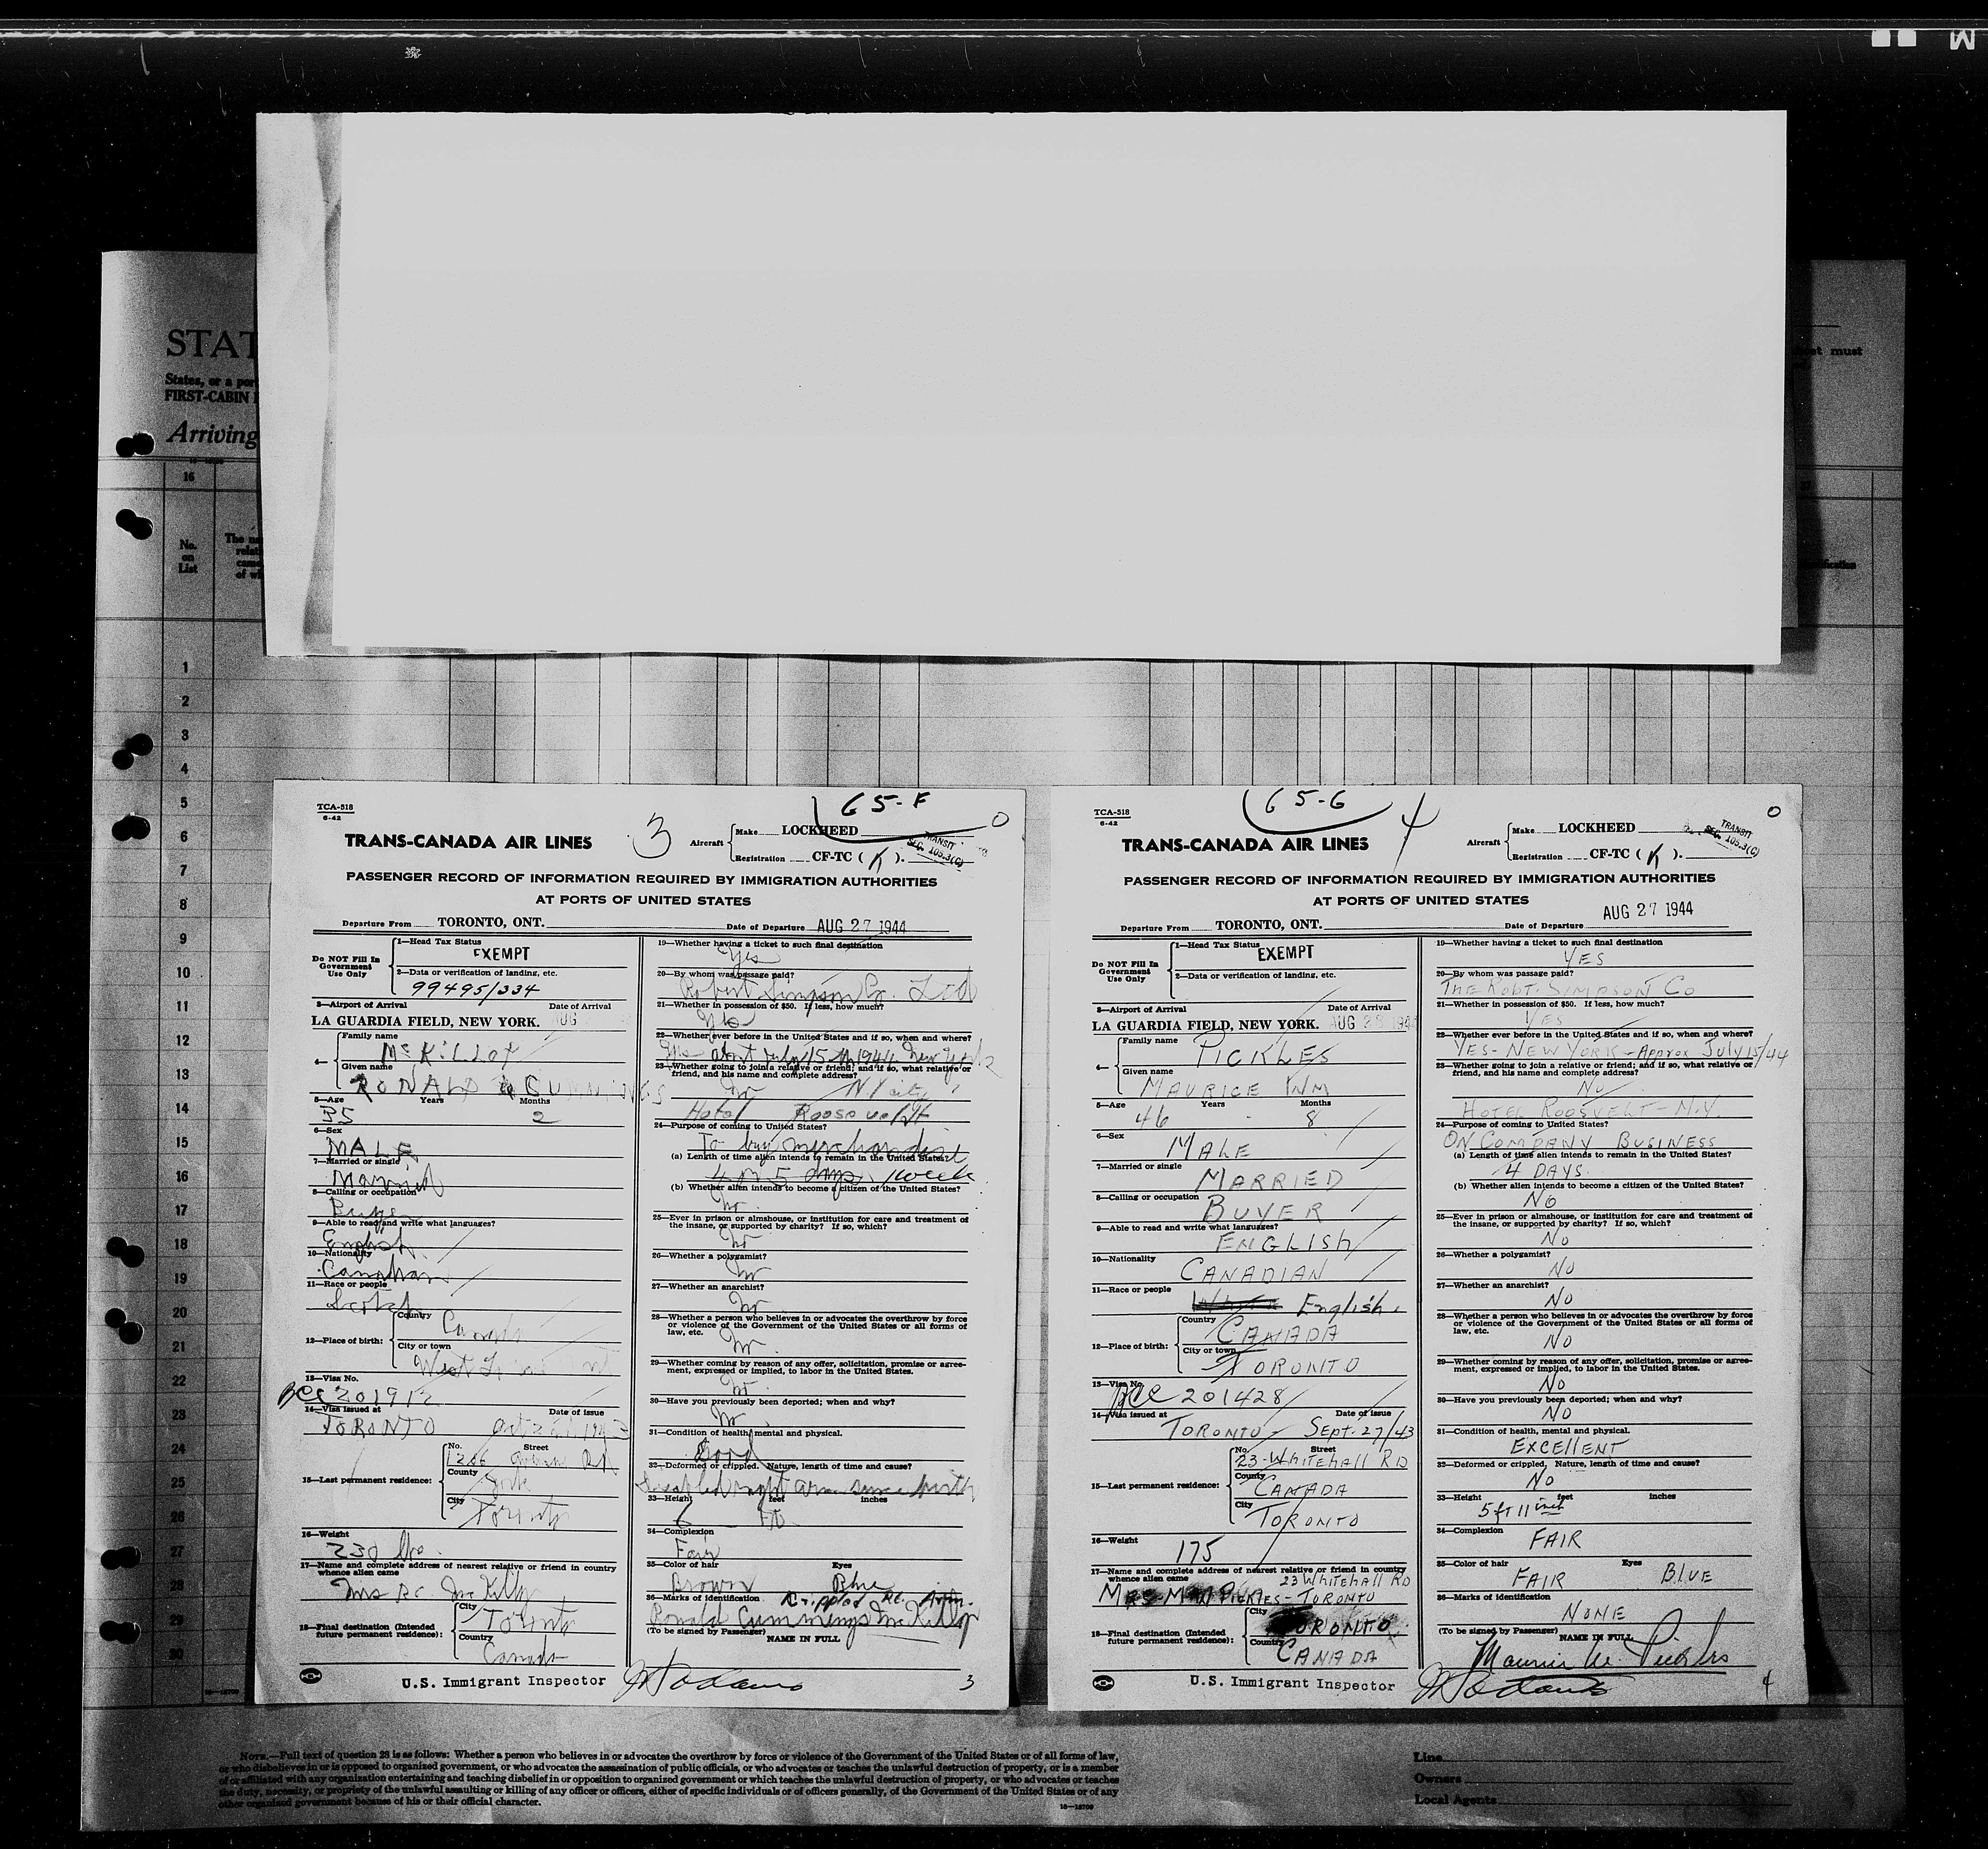 M
STAT
States, or a por
FIRST-CABIN
Arriving
must
16
No.
on
List
1
2
3
4
5
6
7
8
9
10
11
12
13
14
15
16
17
18
19
20
21
22
23
24
25
26
27
28
29
30
TCA-518
6-42
65-F
0
TRANS-CANADA AIR LINES
3
Aircraft
Make LOCKHEED
Registration CF-TC ( K ).
TRANSIT
SEC. 105.3(C)
PASSENGER RECORD OF INFORMATION REQUIRED BY IMMIGRATION AUTHORITIES
AT PORTS OF UNITED STATES
Departure From TORONTO, ONT. Date of Departure AUG 27 1944
Do NOT Fill In
Government
Use Only
1—Head Tax Status
EXEMPT
2—Data or verification of landing, etc.
99495/334
3—Airport of Arrival Date of Arrival
LA GUARDIA FIELD, NEW YORK. AUG
4—
Family name
McKILLOP
Given name
RONALD CUMMINGS
5—Age Years Months
35 2
6—Sex
MALE
7—Married or single
Married
8—Calling or occupation
Buyer
9—Able to read and write what languages?
English
10—Nationality
Canadian
11—Race or people
Scotch
12—Place of birth:
Country
Canada
City or town
West
13—Visa No.
14—Visa issued at Date of issue
TORONTO
15—Last permanent residence:
No. Street
County
York
City
Toronto
16—Weight
230 lbs.
17—Name and complete address of nearest relative or friend in country
whence alien came
Mrs R.C. McKillop
18—Final destination (Intended
future permanent residence):
City
Toronto
Country
Canada
U.S. Immigrant Inspector
19—Whether having a ticket to such final destination
Yes
20—By whom was passage paid?
Robert Simpson Co. Ltd
21—Whether in possession of $50. If less, how much?
Yes
22—Whether ever before in the United States and if so, when and where?
Yes about July 15th 1944 New York
23—Whether going to join a relative or friend; and if so, what relative or
friend, and his name and complete address?
No N.Y. city
Hotel Roosevelt
24—Purpose of coming to United States?
To buy merchandise
(a) Length of time alien intends to remain in the United States?
4 or 5 days, 1 week
(b) Whether alien intends to become a citizen of the United States?
No
25—Ever in prison or almshouse, or institution for care and treatment of
the insane, or supported by charity? If so, which?
No
26—Whether a polygamist?
No
27—Whether an anarchist?
No
28—Whether a person who believes in or advocates the overthrow by force
or violence of the Government of the United States or all forms of
law, etc.
No
29—Whether coming by reason of any offer, solicitation, promise or agree-
ment, expressed or implied, to labor in the United States.
No
30—Have you previously been deported; when and why?
No
31—Condition of health, mental and physical.
Good
32—Deformed or crippled. Nature, length of time and cause?
Disabled right arm since birth
33—Height feet inches
6 ft.
34—Complexion
Fair
35—Color of hair Eyes
Brown Blue
36—Marks of identification Crippled Rt. Arm.
Ronald Cummings McKillop
(To be signed by Passenger)
NAME IN FULL
3
TCA-518
6-42
65-G
0
TRANS-CANADA AIR LINES
4
Aircraft
Make LOCKHEED
Registration CF-TC ( K ).
TRANSIT
SEC. 105.3(C)
PASSENGER RECORD OF INFORMATION REQUIRED BY IMMIGRATION AUTHORITIES
AT PORTS OF UNITED STATES
Departure From TORONTO, ONT. Date of Departure AUG 27 1944
Do NOT Fill In
Government
Use Only
1—Head Tax Status
EXEMPT
2—Data or verification of landing, etc.
3—Airport of Arrival Date of Arrival
LA GUARDIA FIELD, NEW YORK. AUG 1944
4—
Family name
PICKLES
Given name
MAURICE WM
5—Age Years Months
46 8
6—Sex
MALE
7—Married or single
MARRIED
8—Calling or occupation
BUYER
9—Able to read and write what languages?
ENGLISH
10—Nationality
CANADIAN
11—Race or people
English.
12—Place of birth:
Country
CANADA
City or town
TORONTO
13—Visa No.
201428
14—Visa issued at Date of issue
TORONTO SEPT. 27/43
15—Last permanent residence:
No. Street
23-WHITEHALL RD
County
CANADA
City
TORONTO
16—Weight
175
17—Name and complete address of nearest relative or friend in country
whence alien came 23 WHITEHALL RD
MRS PICKLES-TORONTO
18—Final destination (Intended
future permanent residence):
City
TORONTO
Country
CANADA
U.S. Immigrant Inspector
19—Whether having a ticket to such final destination
YES
20—By whom was passage paid?
THE ROBT. SIMPSON CO
21—Whether in possession of $50. If less, how much?
YES
22—Whether ever before in the United States and if so, when and where?
YES-NEW YORK-Approx July 15/44
23—Whether going to join a relative or friend; and if so, what relative or
friend, and his name and complete address?
NO
HOTEL ROOSVELT-N.Y.
24—Purpose of coming to United States?
ON COMPANY BUSINESS
(a) Length of time alien intends to remain in the United States?
4 DAYS.
(b) Whether alien intends to become a citizen of the United States?
NO
25—Ever in prison or almshouse, or institution for care and treatment of
the insane, or supported by charity? If so, which?
NO
26—Whether a polygamist?
NO
27—Whether an anarchist?
NO
28—Whether a person who believes in or advocates the overthrow by force
or violence of the Government of the United States or all forms of
law, etc.
NO
29—Whether coming by reason of any offer, solicitation, promise or agree-
ment, expressed or implied, to labor in the United States.
NO
30—Have you previously been deported; when and why?
NO
31—Condition of health, mental and physical.
EXCELLENT
32—Deformed or crippled, Nature, length of time and cause?
NO
33—Height feet inches
5 ft 11 inch
34—Complexion
FAIR
35—Color of hair Eyes
FAIR BLUE
36—Marks of identification
NONE
(To be signed by Passenger)
NAME IN FULL
Maurice W. Pickles
4
NOTE.—Full text of question 28 is as follows: Whether a person who believes in or advocates the overthrow by force or violence of the Government of the United States or of all forms of law,
or who disbelieves in or is opposed to organized government, or who advocates the assassination of public officials, or who advocates or teaches the unlawful destruction of property, or is a member
of or affiliated with any organization entertaining and teaching disbelief in or opposition to organized government or which teaches the unlawful destruction of property, or who advocates or teaches
the duty, necessity, or propriety of the unlawful assaulting or killing of any officer or officers, either of specific individuals or of officers generally, of the Government of the United States or of any
other organized government because of his or their official character.
Line
Owners
Local Agents